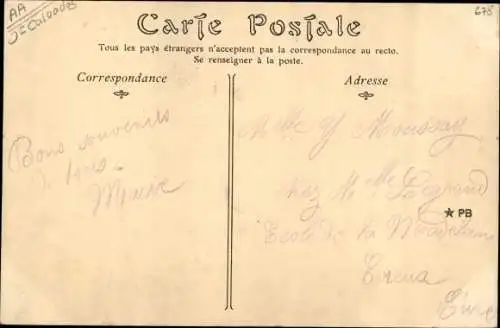 AA
J=Calvados
678
Carte Postale
Tous les pays étrangers n'acceptent pas la correspondance au recto.
Se renseigner à la poste.
Correspondance
Adresse
Bons souvenirs
de tous
Mlle Y
chez Mme Legrand
★ PB
Ecole de la Madeleine
Eure